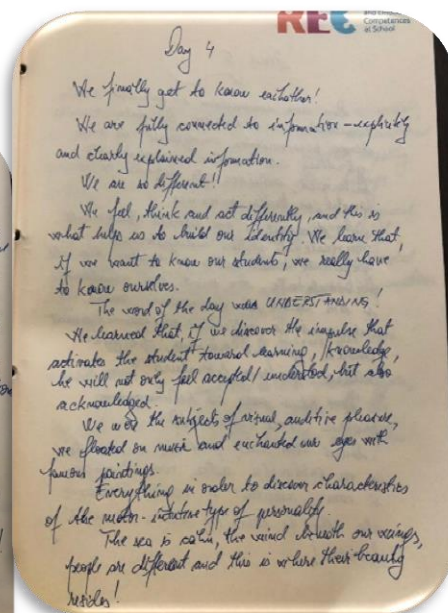 REC
and Cultural
Competences
at School
Day 4
We finally get to know eachother!
We are fully connected to information - explicitly
and clearly explained information.
We are so different!!
We feel, think and act differently, and this is
what helps us to build our identity. We learn that,
if we want to know our students, we really have
to know ourselves.
The word of the day was UNDERSTANDING!
We learned that, if we discover the impulse that
activates the student toward learning, /knowledge,
he will not only feel accepted/understood, but also
acknowledged.
We were the subjects of visual, auditive pleasure,
we floated on music and enchanted our eyes with
famous paintings.
Everything in order to discover characteristics
of the - intuitive type of personality.
The sea is calm, the wind beneath our wings,
people are different and this is where their beauty
resides!